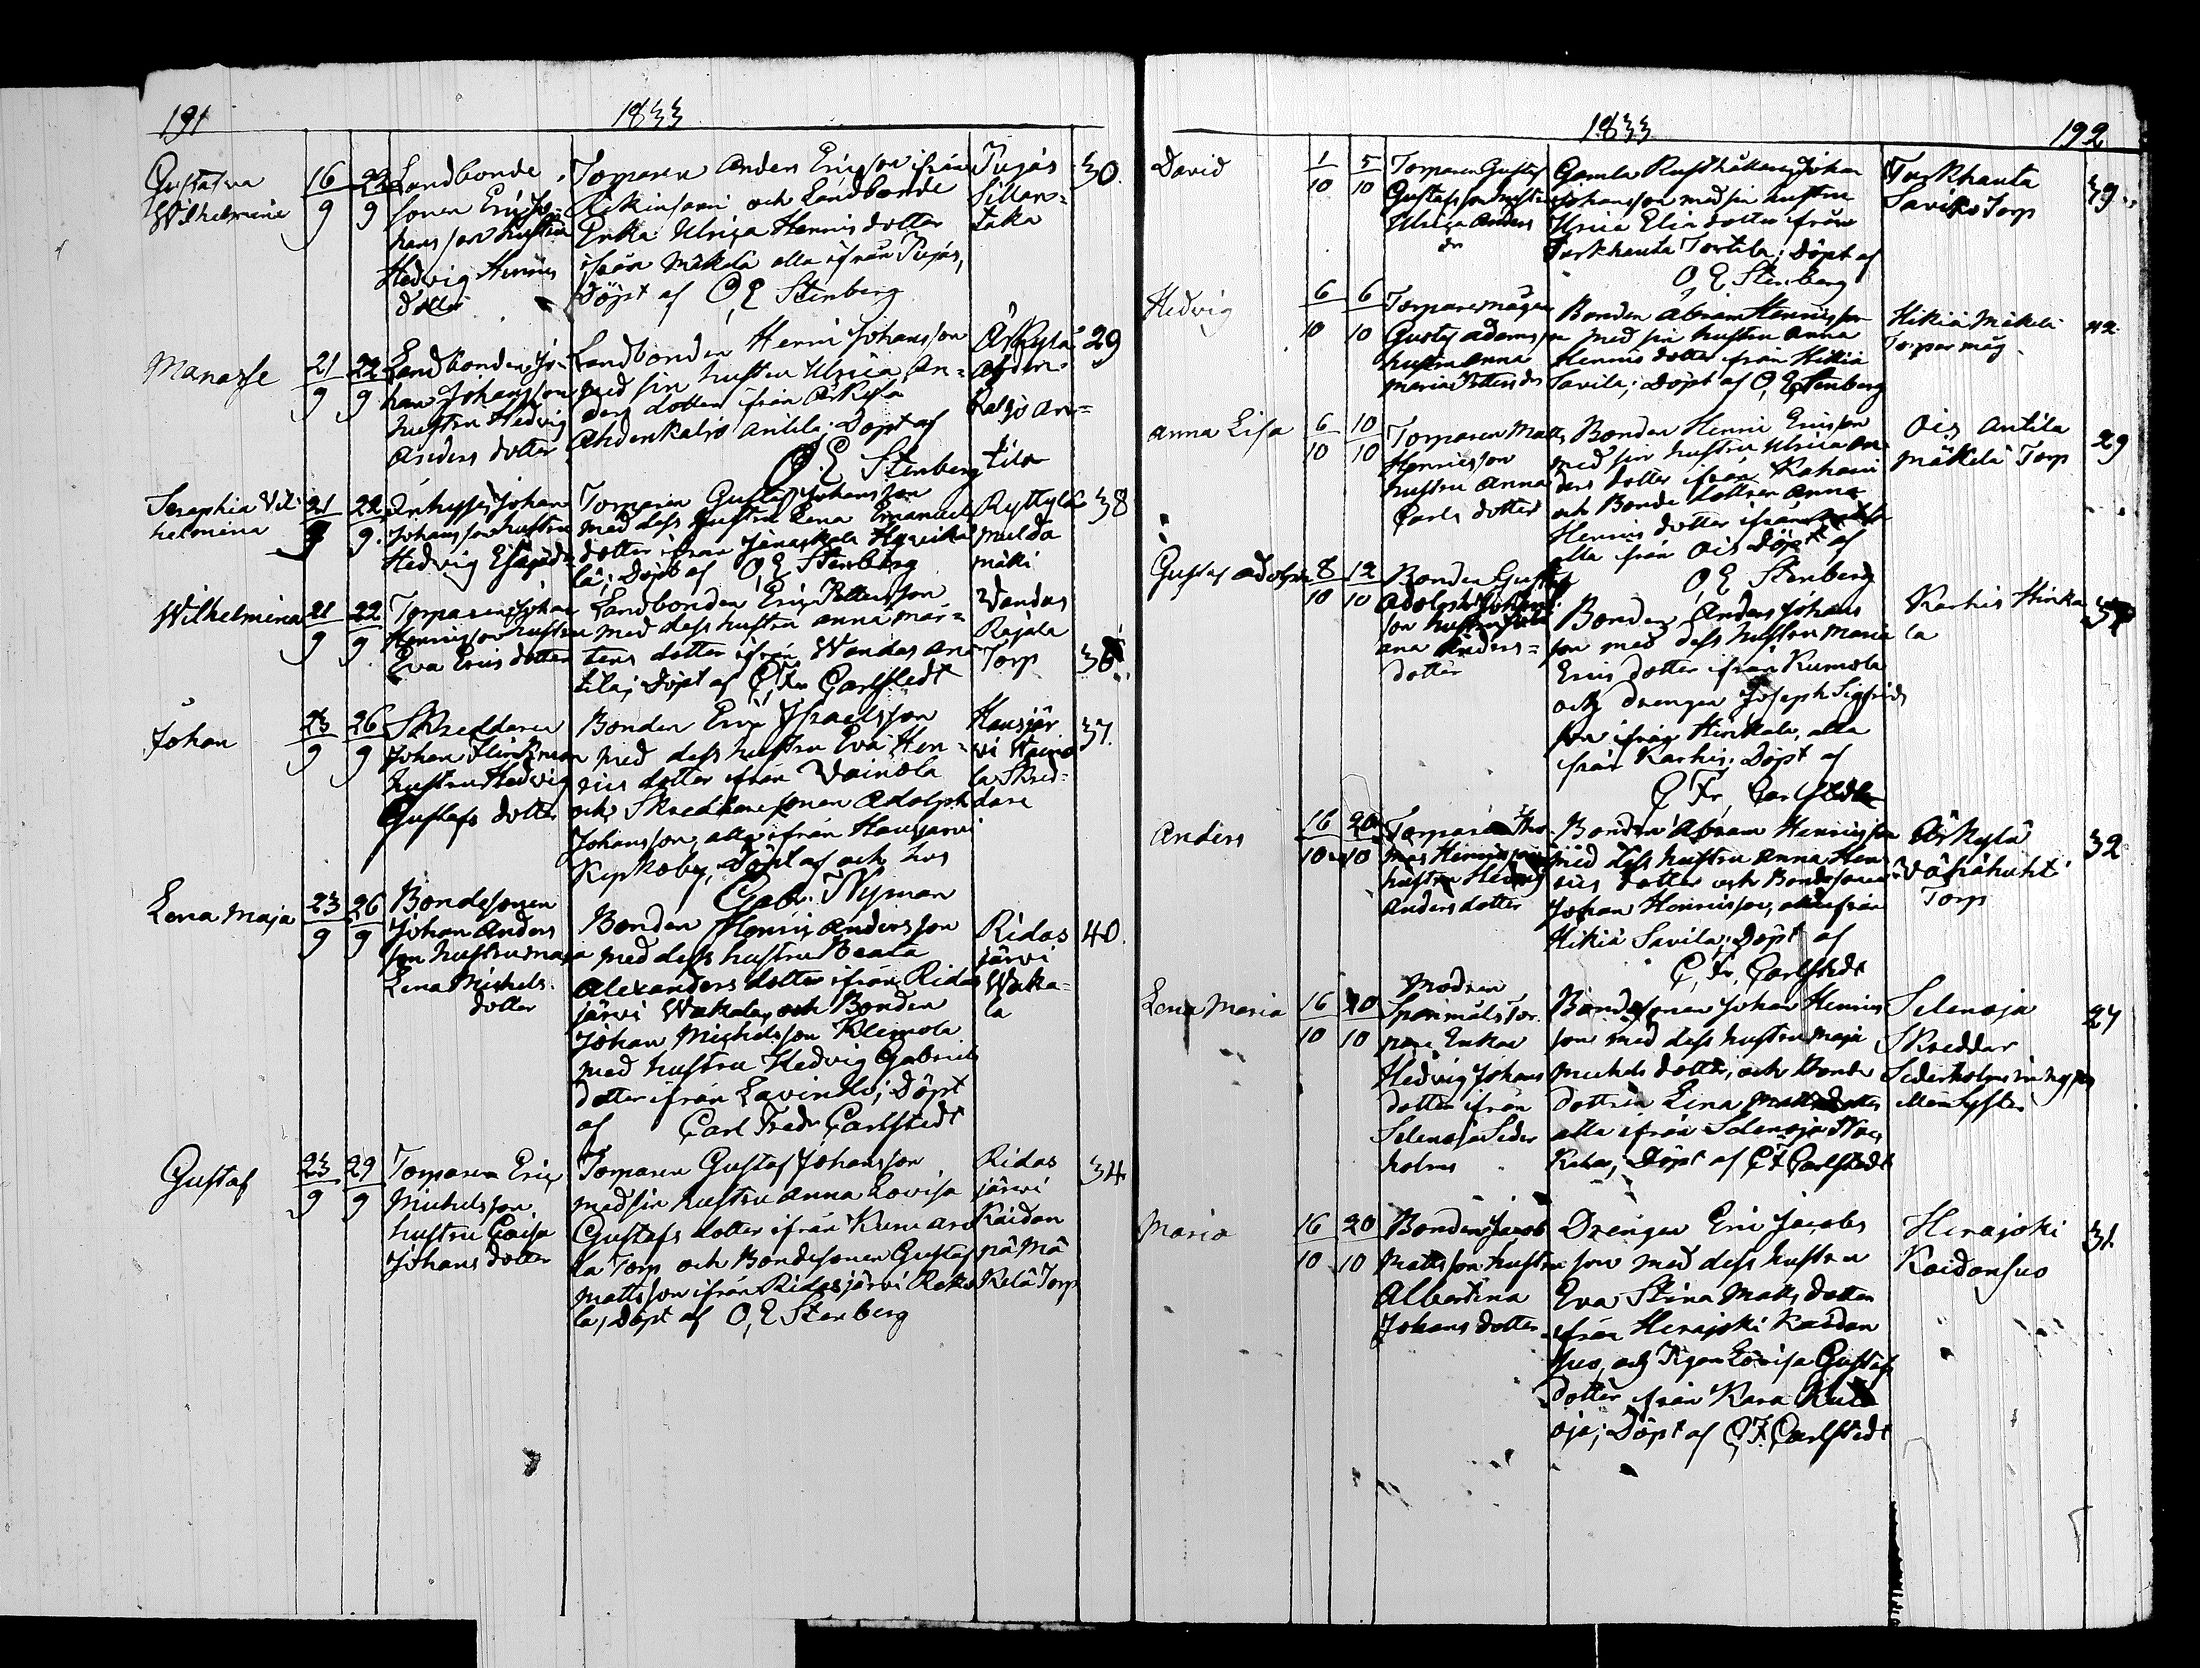 191
1833
Gustafva Wilhelmina
16/9
22/9
Landbonde
sonen Eric Jo-
hansson hustru
Hedvig Henrics
dotter
Torparen Anders Ericsson ifrån
Rikinsaari och Landbonde
Enka Ulrica Henricsdotter
ifrån Mäkelä alla ifrån Pujås,
Döpt af O, E Stenberg
Pujås
Sillan-
taka
30.
Manasse
21/9
22/9
Landbonden Jo-
han Johansson
hustru Hedvig
Anders dotter
Landbonden Henric Johansson
med sin hustru Ulrica An-
ders dotter ifrån Ärkylä
Ahdenkaljo Anttila. Döpt af
O. E Stenberg
Ärkylä
Ahden-
kaljo An-
tila
29
Seraphia Vil-
helmina
21/9
22/9.
Inhyses Johan
Johansson hustru
Hedvig Esajæd.
Torparen Gustaf Johansson
med dess hustru Lena Emanuels
dotter ifrån Janakala Hyvikä
lä; Döpt af O, E Stenberg
Ryttylä
mulda
mäki
38
Wilhelmina
21/9
22/9
Torparen Johan
Henricsson hustru
Eva Erics dotter
Landbonden Eric Pettersson
med dess hustru Anna Mår-
tens dotter ifrån Wandas An
tila; Döpt af C, Fr Carlstedt
Vandas
Rajala
Torp
36.
Johan
23/9
26/9
Skreddaren
Johan Flinkman
hustru Hedvig
Gustafs dotter
Bonden Eric Israelsson
med dess hustru Eva Hen-
rics dotter ifrån Vainola
och Skreddaresonen Adolph
Johansson, alla ifrån Hausjärvi
Kyrkoby, Döpt af och hos
Gabr. Nyman
Hausjär
vi Waino
la Skred-
dare
37.
Lena Maja
23/9
26/9
Bondesonen
Johan Anders
son hustru Maja
Lena Michels-
dotter
Bonden Henric Andersson
med dess hustru Beata
Alexanders dotter ifrån Ridas
järvi Wakala, och Bonden
Johan Michelsson Klemola
med hustru Hedvig Gabriels
dotter ifrån Lavinto; Döpt
af Carl Fredr Carlstedt
Ridas
järvi
Waka-
la
40.
Gustaf
23/9
29/9
Torparen Eric
Michelsson,
hustru Caisa
Johans dotter
Torparen Gustaf Johansson
med sin hustru Anna Lovisa
Gustafs dotter ifrån
la Torp och Bondesonen Gustaf
Mattsson ifrån Ridasjärvi Rako
la, Döpt af O, E Stenberg
Ridas
järvi
Kaidan
pä Mä
kelä Torp
34
1833
192
David
1/10
5/10
Torparen Gustaf
Gustafsson hustru
Ulrica Anders
dr
Gamla Rusthållaren Johan
Johansson med sin hustru
Ulrica Elia dotter ifrån
Turkhauta Tortila; Döpt af
O, E Stenberg
Turkhauta
Saviko Torp
39.
Hedvig
6/10
6/10
Torparemågen
Gustaf Adamsson
hustru Anna
Maria Petters dr
Bonden Abram Henricsson
med sin hustru Anna
Henrics dotter ifrån Hikiä
Savila; Döpt af O, E Stenberg
Hikiä Mäkelä
Torpar måg.
42.
Anna Lisa
6/10
10/10
Torparen Matts
Henricsson
hustru Anna
Carls dotter
Bonden Henric Ericsson
med sin hustru Ulrica An
ders dotter ifrån Kahari
och Bonde dottren Anna
Henrics dotter ifrån
alla ifrån Ois Döpt af
O, E Stenberg
Ois Antila
Mäkelä Torp
29
Gustaf Adolph
8/10
12/10
Bonden Gustaf
Adolph Johans
son hustru Juli
ana Anders-
dotter
Bonden Anders Johans
son med dess hustru Maria
Erics dotter ifrån Kumola
och drengen Joseph Sigfrids
son ifrån Hirkala, alla
från Karhis; Döpt af
C Fr, Carlstedt
Karhis Hirka
la
Anders
16/10
20/10
Torparen Tho
mas Henricsson
hustru Hedvig
Anders dotter
Bonden Abram Henricsson
med dess hustru Anna Hen
rics dotter och Bondesonen
Johan Henricsson, alla ifrån
Hikiä Savila; Döpt af
C, Fr, Carlstedt
Ärkylä
Torp
32
Lena Maria
16/10
20/10
Modren
Spanmåls Tor.
pare Enkan
Hedvig Johans
dotter ifrån
Selenoja Seder
holms
Bondesonen Johan Henrics
son med dess hustru Maja
Michels dotter, och Bonde
dottren Lena Matts dotter
alla ifrån Selenoja
Döpt af C F Carlstedt
Selenoja
Skreddar
Sederholms inhyses
27
Maria
16/10
20/10
Bonden Jacob
Mattsson hustru
Albertina
Johans dotter
Drengen Eric Jacobs
son med dess hustru
Eva Stina Matts dotter
ifrån Herajoki Kaidan
suo, och Pigan Lovisa Gustafs
dotter ifrån Kara Kula
oja; Döpt af C F Carlstedt
Herajoki
Kaidansuo
31.